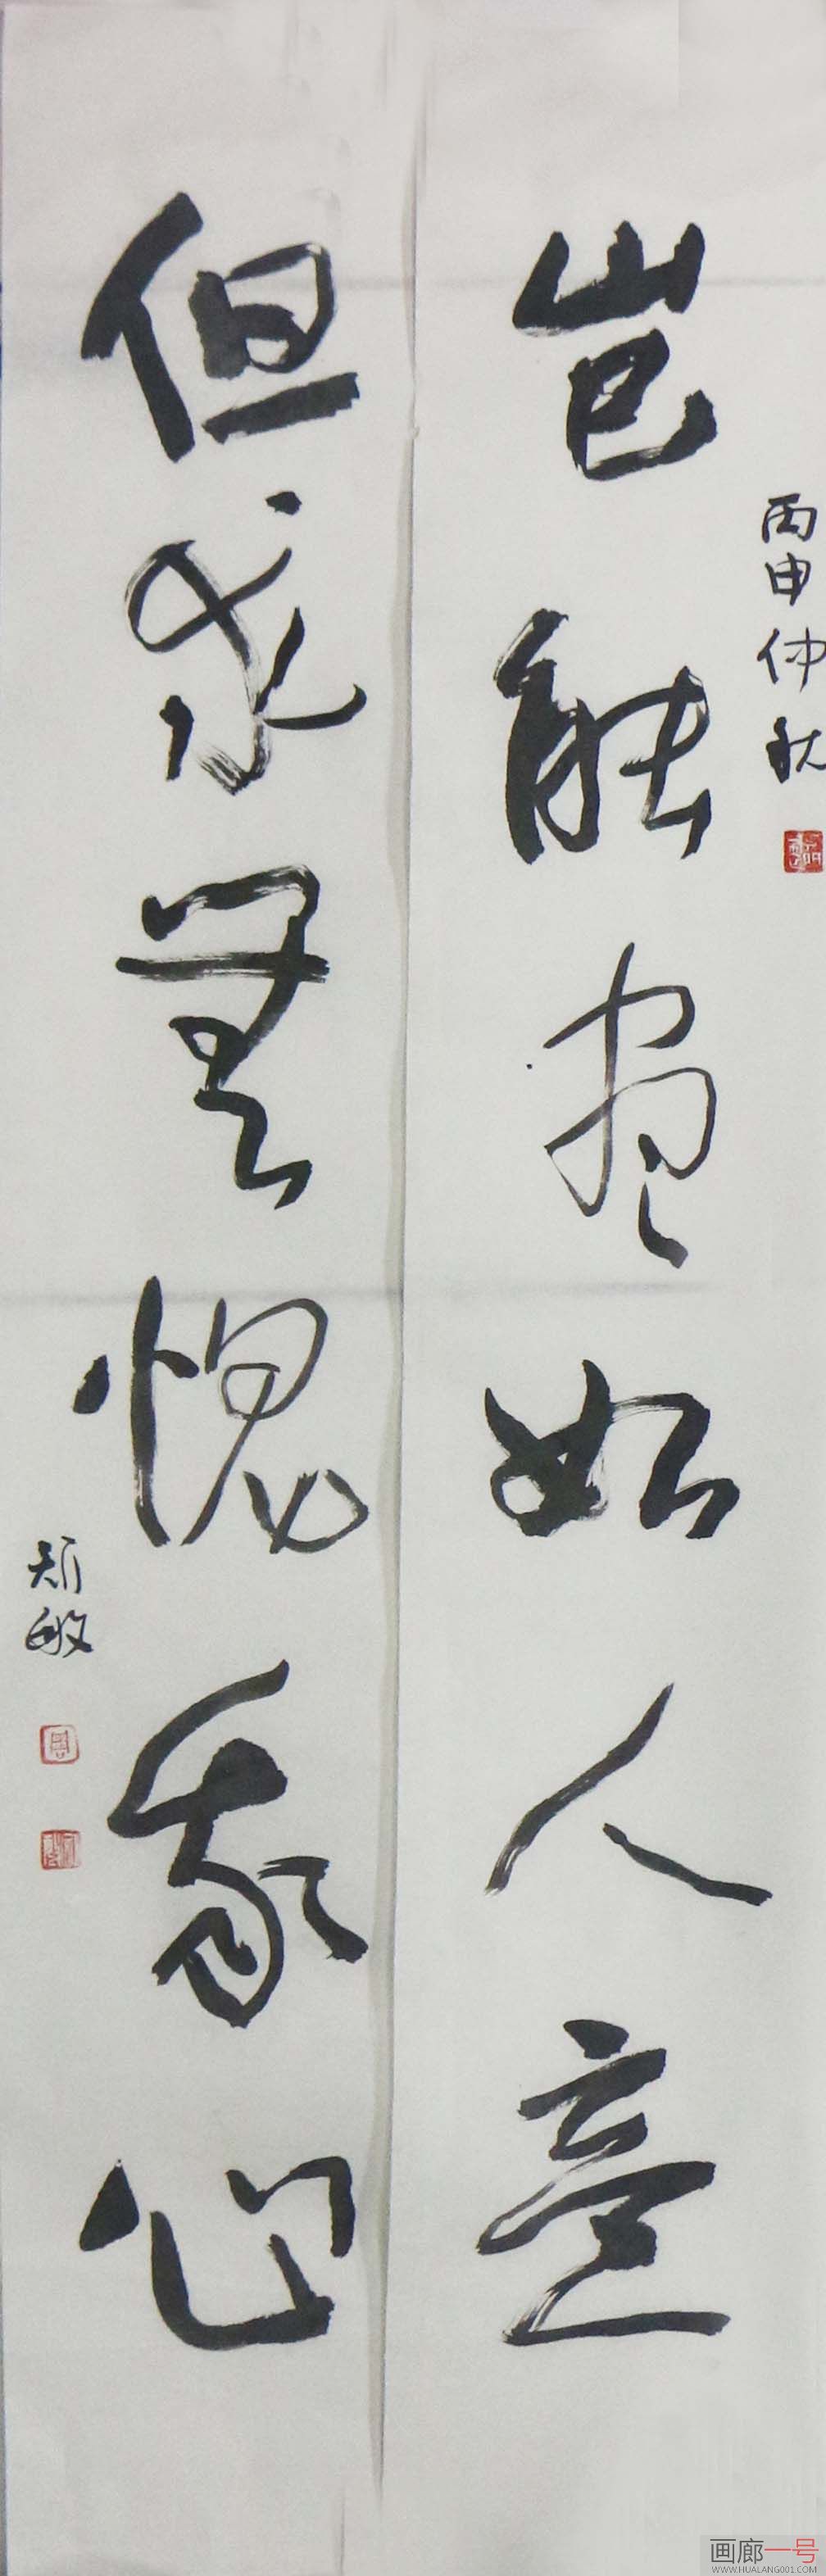 豈能盡如人意
丙申仲秋
但求無愧我心
画廊一号
WWW.HUALANG001.COM